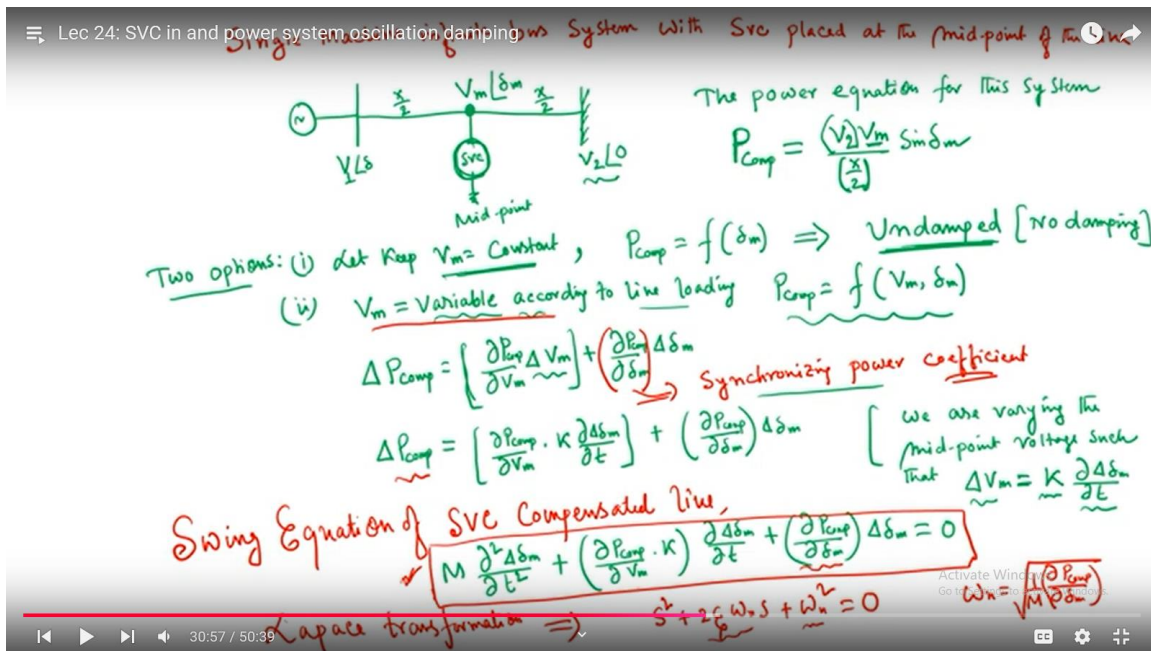 Single machine infinite bus System with Svc placed at the mid-point of the line
Lec 24: SVC in and power system oscillation damping
x/2 Vm∠δm x/2
~
V1∠δ
SVC
V2∠0
Mid-point
The power equation for this system
Pcomp = (V2)Vm/(x/2) Sinδm
Two options: (i) Let Keep Vm = Constant, Pcomp = f(δm) ⇒ Undamped [No damping]
(ii) Vm = Variable according to line loading Pcomp = f(Vm, δm)
ΔPcomp = [∂Pcomp/∂Vm ΔVm] + (∂Pcomp/∂δm) Δδm
→ Synchronizing power coefficient
ΔPcomp = [∂Pcomp/∂Vm · K ∂Δδm/∂t] + (∂Pcomp/∂δm) Δδm
[we are varying the
mid-point voltage such
that ΔVm = K ∂Δδm/∂t
Swing Equation of SVC Compensated line,
M ∂²Δδm/∂t² + (∂Pcomp/∂Vm · K) ∂Δδm/∂t + (∂Pcomp/∂δm) Δδm = 0
Lapace transformation ⇒ s² + 2ξωns + ωn² = 0
ωn = √(1/M (∂Pcomp/∂δm))
Activate Windows
30:57 / 50:39
CC